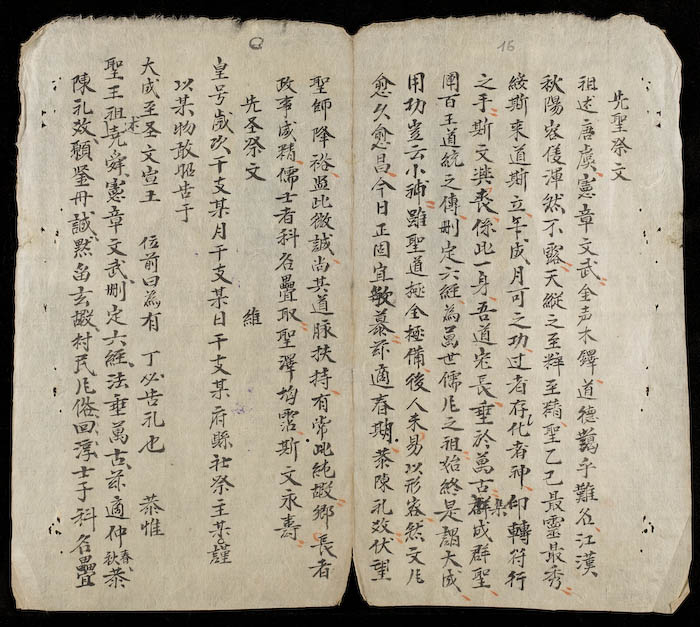 16
先聖祭文
祖述唐虞憲章文武金声木鐸道德蕩乎難名江漢
秋陽容儀渾然不露天縱之至粹至精聖乙己最靈最秀
綏斯来道斯立年成月可之功过者存化者神仰轉符行
之手斯文興喪係此一身吾道宗長垂於萬古群集成群聖
闡百王道統之傳删定六經為萬世儒凡之祖始終是謂大成
用功豈云小補雖聖道極全極備後人未易以形容然文凡
愈久愈昌今日正固宜敏慕茲適春期恭陳礼效伏望
聖師降裕监此微誠尚其道脉扶持有常此純嘏鄉長者
政事咸精儒士者科名疊取聖澤均霑斯文永壽
先圣祭文 維
皇号歲次干支某月干支某日干支某府縣社祭主某謹
以某物敢昭告于
大成至圣文宣王 位前曰為有 丁必告礼也 恭惟
聖王祖述尭舜憲章文武删定六經法垂萬古茲適仲春秋恭
陳礼效願鉴丹誠默畐玄嘏村民凡俗回淳士子科名疊